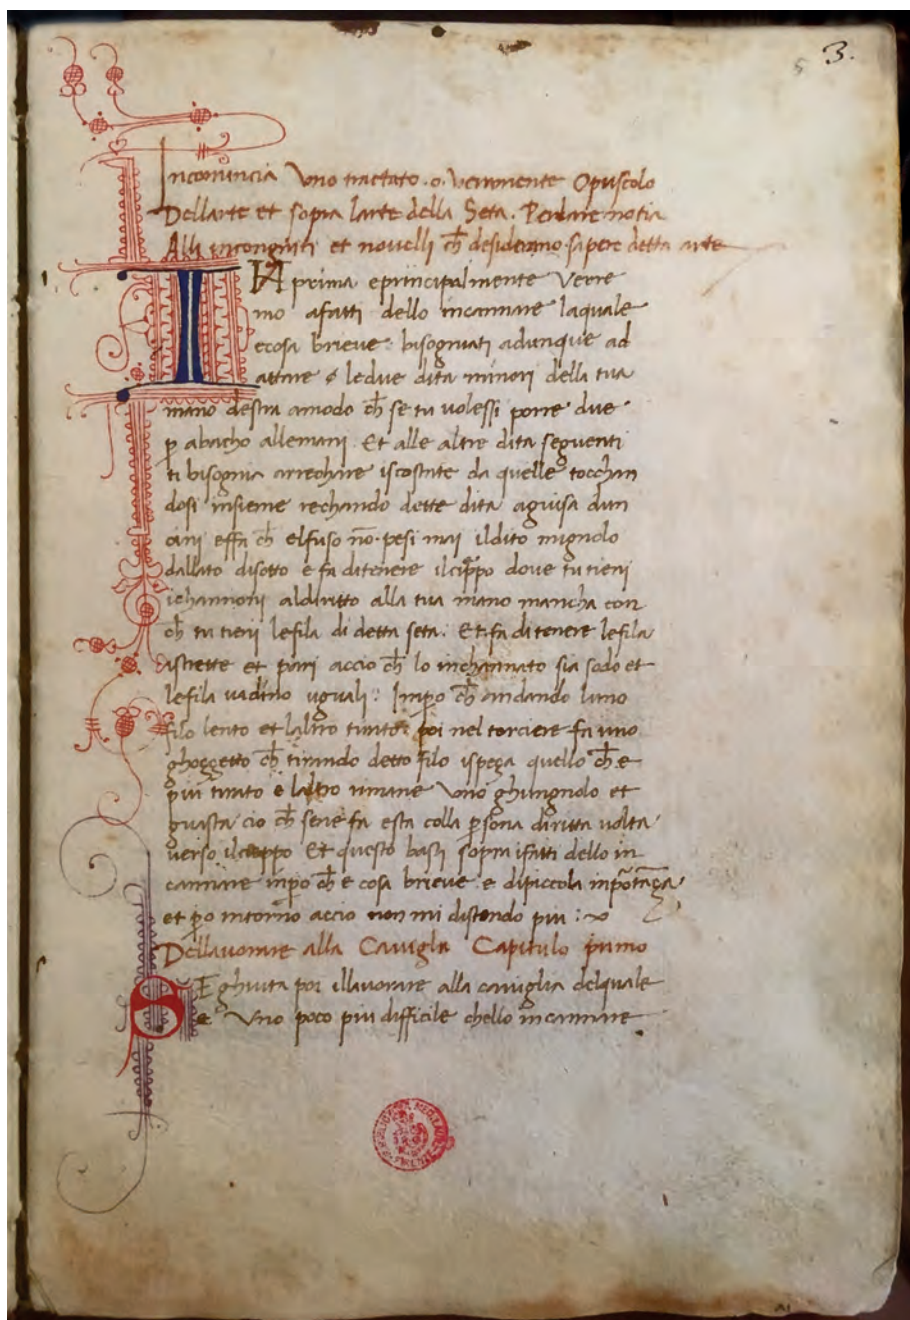 5 3.
Incomincia Uno tractato .o. veramente Opuscolo
Dellarte et sopra larte della Seta. Perdare notia
Alli incongniti et novelli ch̄ desiderano sapere detta arte
INprima eprincipalmente Verre
mo afatti dello incannare laquale
ecosa brieve: bisogniati adunque ad
attare ledue dita minori della tua
mano destra amodo ch̄ se tu volessi porre due
ꝑ abacho allemani. Et alle altre dita seguenti
ti bisognia arrechare iscostate da quelle tocchan
dosi insieme rechando dette dita aguisa dun
cini effa ch̄ elfuso nō pesi mai ildito mignolo
dallato disotto e fa ditenere ilcippo dove tu tieni
ichannoni aldiritto alla tua mano mancha con
ch̄ tu tieni lefila di detta seta. Et fa ditenere lefila
istrette et pari accio ch̄ lo inchannato sia sodo et
lefila vadino uguali: Imꝑo ch̄ andando luno
filo lento et laltro tirato: poi nel torciere fa uno
ghoggetto ch̄ tirando detto filo ispega quello ch̄ e
piu tirato e laltro rimane Uno ghungnolo et
guasta cio ch̄ sene fa esta colla ꝑsona diritta volta
verso ilceppo Et questo basti sopra ifatti dello in
cannare inꝑo ch̄ e cosa brieve e dipiccola inꝑotāça
et ꝑo intorno accio non mi distendo piu :~
Dellavorare alla Caviglia Capitulo primo
SEghuita poi illavorare alla caviglia delquale
e Uno poco piu difficile chello incannare.